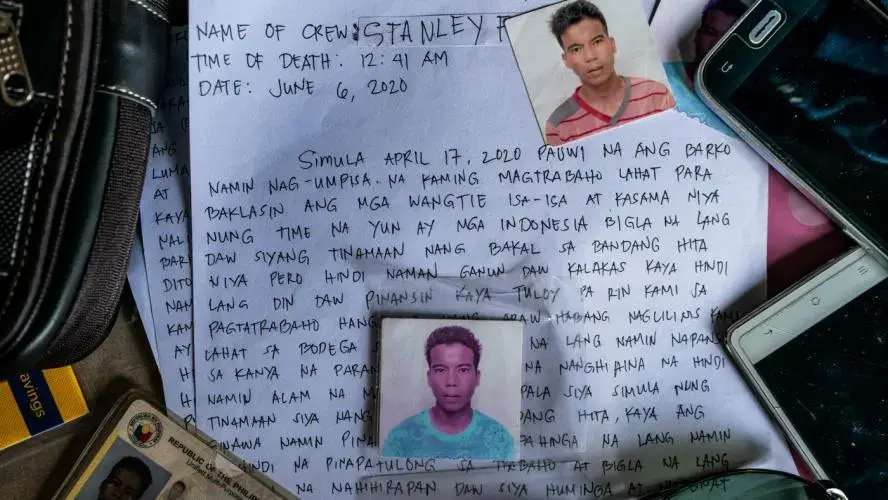 NAME OF CREW: STANLEY
TIME OF DEATH: 12:41 AM
DATE: JUNE 6, 2020
SIMULA APRIL 17, 2020 PAUWI NA ANG BARKO
NAMIN NAG-UMPISA NA KAMING MAGTRABAHO LAHAT PARA
BAKLASIN ANG MGA WANGTIE ISA-ISA AT KASAMA NIYA
NUNG TIME NA YUN AY MGA INDONESIA BIGLA NA LANG
DAW SIYANG TINAMAAN NANG BAKAL SA BANDANG HITA
NIYA PERO HINDI NAMAN GANUN DAW KALAKAS KAYA HINDI
LANG DIN DAW PINANSIN KAYA TULOY PA RIN KAMI SA
PAGTATRABAHO ARAW HABANG NAGLILINIS KAMI
LAHAT SA BODEGA NA LANG NAMIN
SA KANYA NA NA NANGHIHINA NA HINDI
NAMIN ALAM NA PALA SIYA SIMULA NUNG
TINAMAAN SIYA NANG HITA, KAYA ANG
GINAWA NAMIN NA LANG NAMIN
NA PINAPATULONG SA TRABAHO AT BIGLA NA LANG
NA NAHIHIRAPAN DAW SIYA HUMINGA AT
SA
ANG
AT
KAYA
DITO
NAM
KAM
AY
avings
REPUBLIC OF THE PHILIP